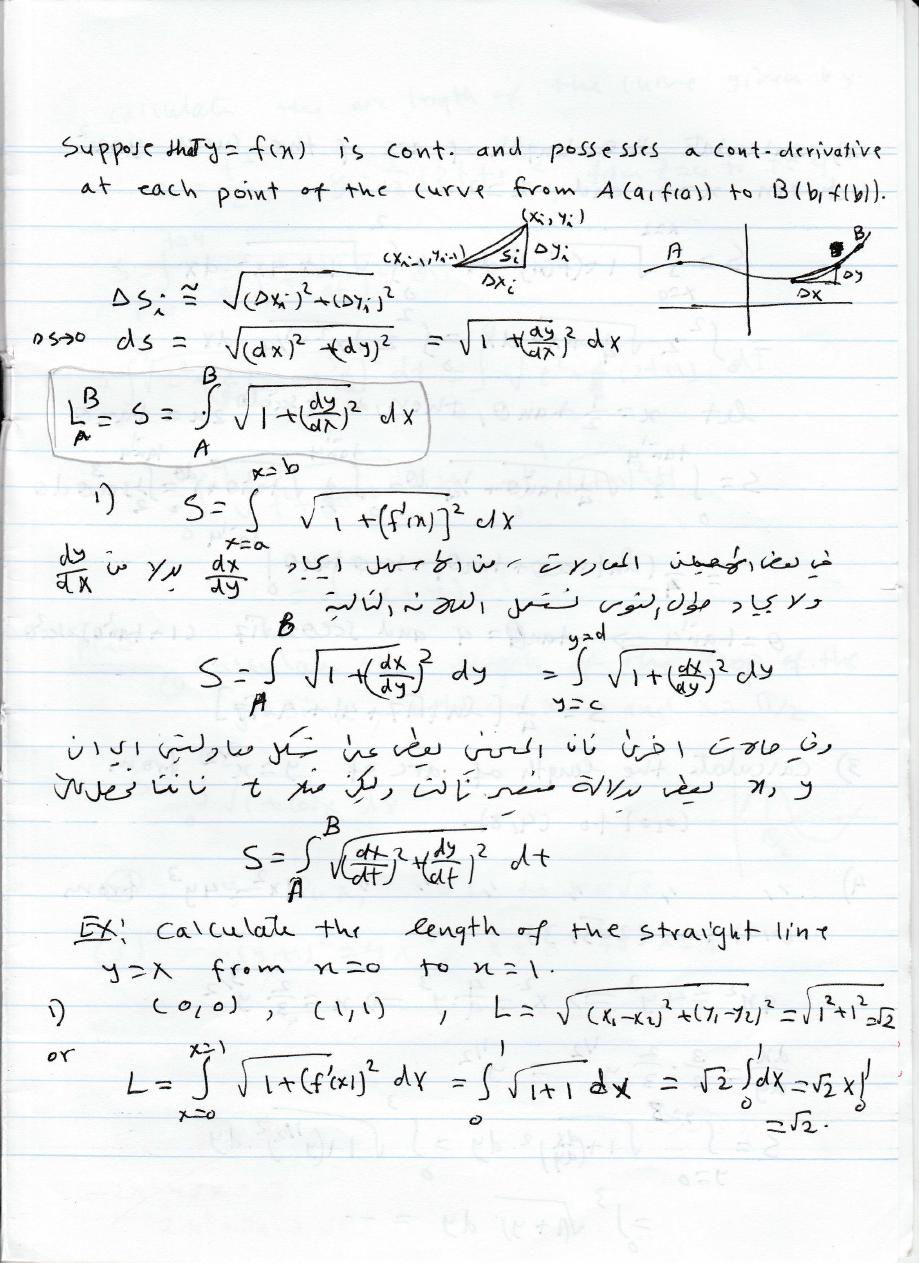 Suppose that y = f(x) is cont. and possesses a cont. derivative
at each point of the curve from A(a, f(a)) to B(b, f(b)).
(xᵢ, yᵢ)
(xᵢ₋₁, yᵢ₋₁) Sᵢ Δyᵢ
Δxᵢ
A B
Δy
Δx
ΔSᵢ ≅ √((Δxᵢ)² + (Δyᵢ)²)
Δs→0 ds = √((dx)² + (dy)²) = √(1 + (dy/dx)²) dx
L_A^B = S = ∫_A^B √(1 + (dy/dx)²) dx
1) S = ∫_{x=a}^{x=b} √(1 + (f'(x)]² dx
في بعض المعادلات من الاسهل ايجاد dx/dy بدلا من dy/dx
ولايجاد طول القوس نستعمل التالية
S = ∫_A^B √(1 + (dx/dy)²) dy = ∫_{y=c}^{y=d} √(1 + (dx/dy)²) dy
وفي حالات اخرى فان المنحني يعطى على شكل اي ان
y و x يعطى بدلالة متغير ثالث وليكن مثلا t فاننا نحصل على
S = ∫_A^B √((dx/dt)² + (dy/dt)²) dt
EX: Calculate the length of the straight line
y = x from x = 0 to x = 1.
1) (0,0) , (1,1) , L = √((x₁-x₂)² + (y₁-y₂)²) = √(1²+1²) = √2
or
L = ∫_{x=0}^{x=1} √(1 + (f'(x))²) dx = ∫_0^1 √(1+1) dx = √2 ∫_0^1 dx = √2 x|_0^1
= √2.